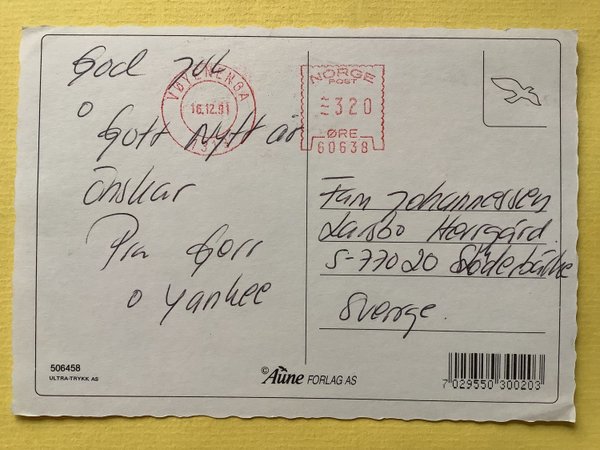 God Jul
o
Gott Nytt år
önskar
Pia Gorr
o Yankee
VØYENENGA
16.12.91
NORGE
POST
320
ØRE
60638
Fam Johannessen
Larsbo Herrgård.
S-77020 Söderbärke
Sverge.
506458
ULTRA-TRYKK AS
© Aune FORLAG AS
7 029550 300203